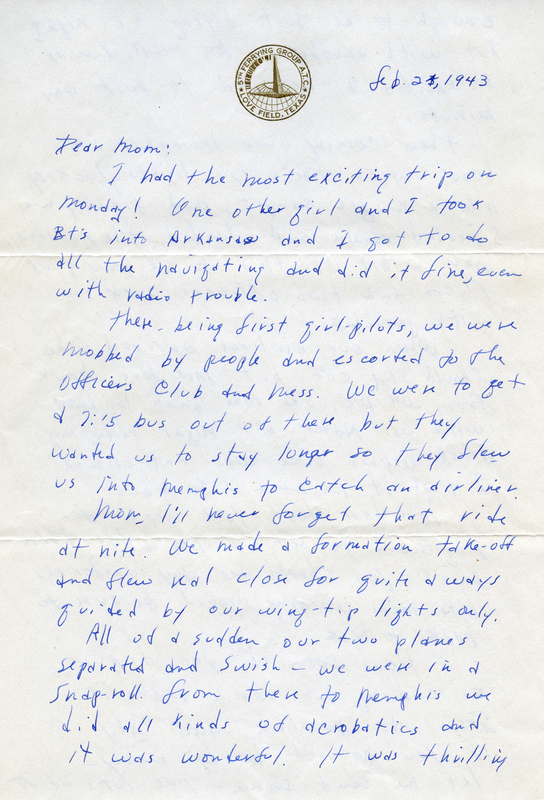 5TH FERRYING GROUP A.T.C.
LOVE FIELD, TEXAS
Feb. 21, 1943
Dear Mom!
I had the most exciting trip on
Monday! One other girl and I took
Bt's into Arkansas and I got to do
all the navigating and did it fine, even
with radio trouble.
There, being first girl-pilots, we were
mobbed by people and escorted to the
Officers Club and Mess. We were to get
a 7:15 bus out of there but they
wanted us to stay longer so they flew
us into Memphis to catch an airliner.
Mom, I'll never forget that ride
at nite. We made a formation take-off
and flew real close for quite a ways
guided by our wing-tip lights only.
All of a sudden our two planes
separated and Swish - we were in a
Snap-roll. From there to Memphis we
did all kinds of acrobatics and
it was wonderful. It was thrilling